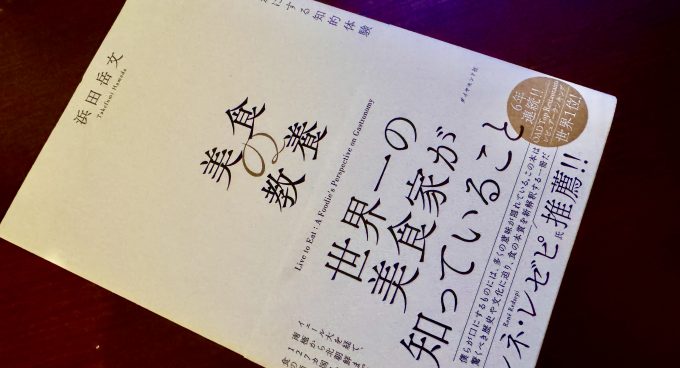 にする 知的体験
浜田岳文
Takefumi Hamada
美食の
教養
Live to Eat : A Foodie's Perspective on Gastronomy
ダイヤモンド社
世界一の
美食家が
知っていること
6年
連続!!
OAD Top Restaurants
世界1位!
僕らが口にするものには、多くの意味が隠れている。この本は
驚くべき歴史や文化に迫り、食の本質を新解釈する一冊だ
René Redzepi
ネ・レゼピ氏 推薦!!
イェール大を経て、
南極から北朝鮮まで
127カ国
食の